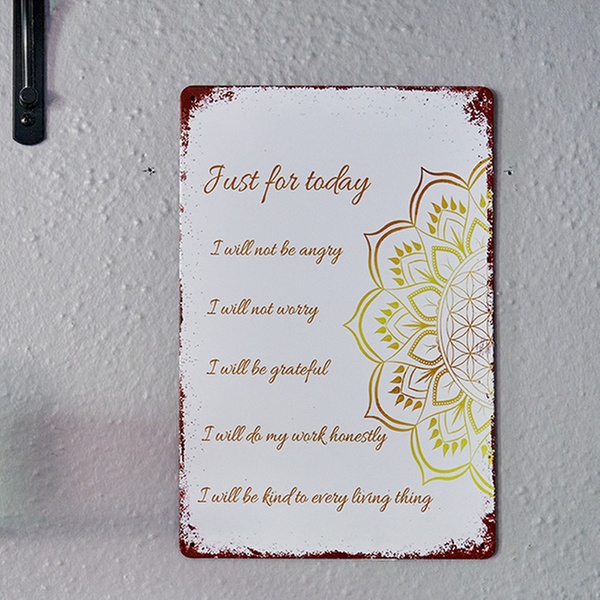 Just for today
I will not be angry
I will not worry
I will be grateful
I will do my work honestly
I will be kind to every living thing